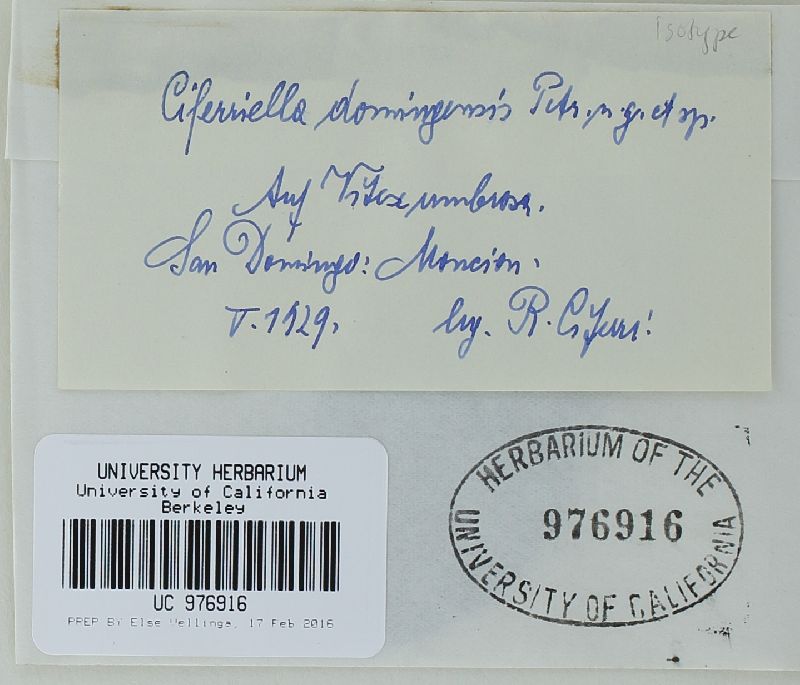 Isotype
Ciferriella domingensis Petr. n. g. et sp.
Auf Vitex umbrosa.
San Domingo: Moncion.
V. 1929. leg. R. Ciferri!
UNIVERSITY HERBARIUM
University of California
Berkeley
UC 976916
PREP BY Else Vellinga, 17 Feb 2016
HERBARIUM OF THE
976916
UNIVERSITY OF CALIFORNIA